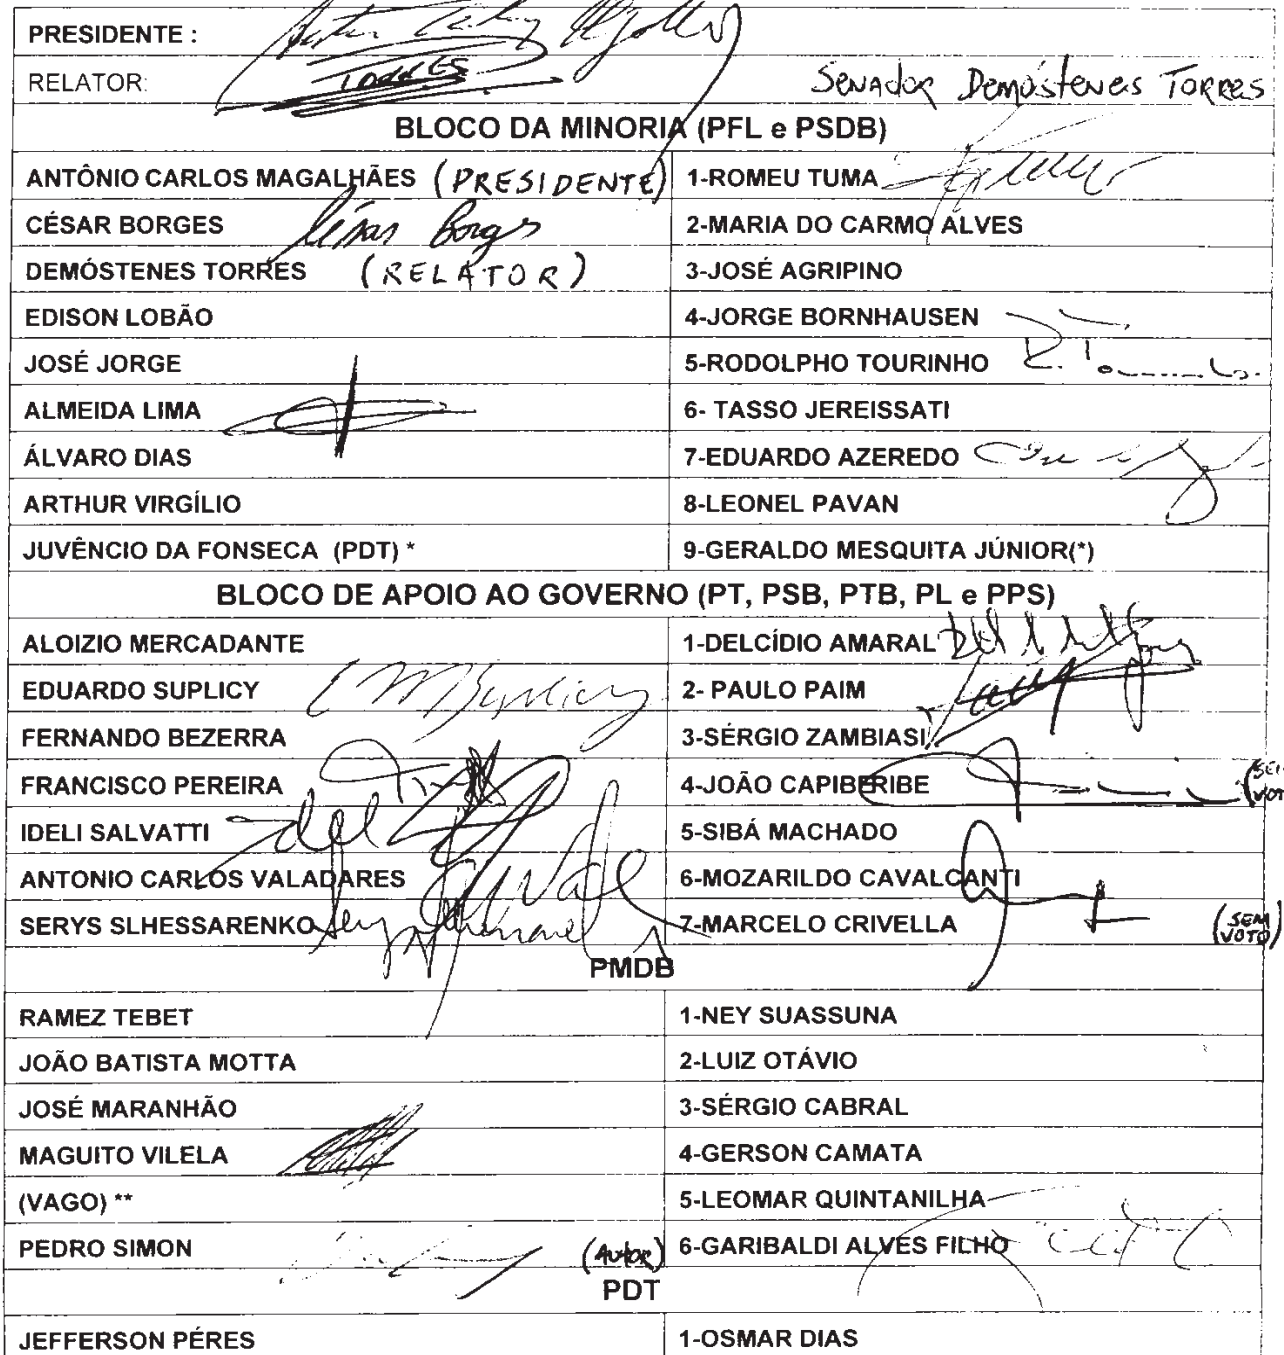 PRESIDENTE :
RELATOR: Senador Demóstenes Torres
BLOCO DA MINORIA (PFL e PSDB)
ANTÔNIO CARLOS MAGALHÃES (PRESIDENTE) 1-ROMEU TUMA
CÉSAR BORGES César Borges 2-MARIA DO CARMO ALVES
DEMÓSTENES TORRES (RELATOR) 3-JOSÉ AGRIPINO
EDISON LOBÃO 4-JORGE BORNHAUSEN
JOSÉ JORGE 5-RODOLPHO TOURINHO
ALMEIDA LIMA 6- TASSO JEREISSATI
ÁLVARO DIAS 7-EDUARDO AZEREDO
ARTHUR VIRGÍLIO 8-LEONEL PAVAN
JUVÊNCIO DA FONSECA (PDT) * 9-GERALDO MESQUITA JÚNIOR(*)
BLOCO DE APOIO AO GOVERNO (PT, PSB, PTB, PL e PPS)
ALOIZIO MERCADANTE 1-DELCÍDIO AMARAL
EDUARDO SUPLICY 2- PAULO PAIM
FERNANDO BEZERRA 3-SÉRGIO ZAMBIASI
FRANCISCO PEREIRA 4-JOÃO CAPIBERIBE
IDELI SALVATTI 5-SIBÁ MACHADO
ANTONIO CARLOS VALADARES 6-MOZARILDO CAVALCANTI
SERYS SLHESSARENKO 7-MARCELO CRIVELLA (SEM VOTO)
PMDB
RAMEZ TEBET 1-NEY SUASSUNA
JOÃO BATISTA MOTTA 2-LUIZ OTÁVIO
JOSÉ MARANHÃO 3-SÉRGIO CABRAL
MAGUITO VILELA 4-GERSON CAMATA
(VAGO) ** 5-LEOMAR QUINTANILHA
PEDRO SIMON (AUTOR) 6-GARIBALDI ALVES FILHO
PDT
JEFFERSON PÉRES 1-OSMAR DIAS